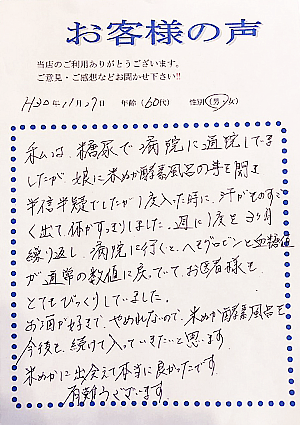 お客様の声
当店のご利用ありがとうございます。
ご意見・ご感想などお聞かせ下さい!!
H30年11月27日 年齢(60代) 性別(男・女)
私は、糖尿で病院に通院してま
したが、娘に米ぬか酵素風呂の事を聞き
半信半疑でしたが1度入った時に、汗がものすご
く出て、体がすっきりしました。週に1度を3ヶ月
繰り返し、病院に行くと、ヘモグロビンと血糖値
が通常の数値に戻っていてお医者様も
とてもびっくりしていました。
お酒が好きで、やめれないので、米ぬか酵素風呂を
今後も、続けて入っていきたいと思います。
米ぬかに出会えて本当に良かったです
有難うございます。